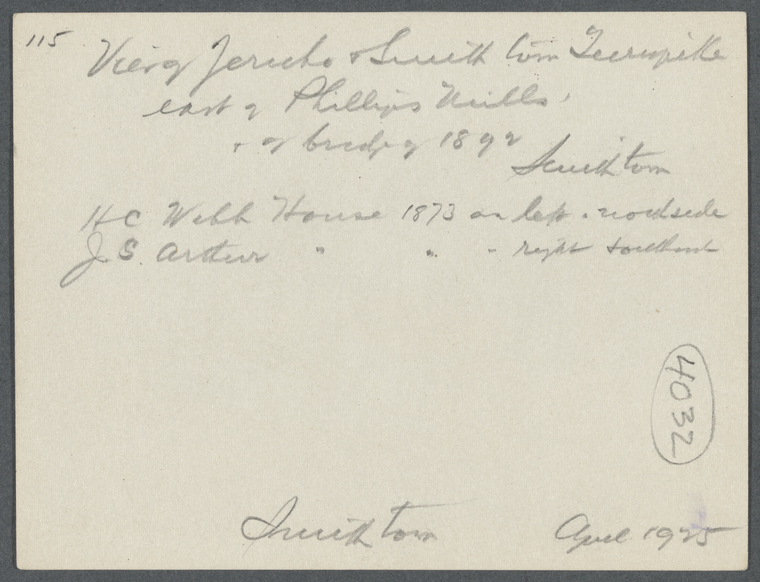 115 View of Jericho & Smithtown Turnpike
east of Phillips Mills
& of bridge of 1892
Smithtown
H C Webb House 1873 on left - roadside
J. S. Arthur " " - right
4032
Smithtown April 1925